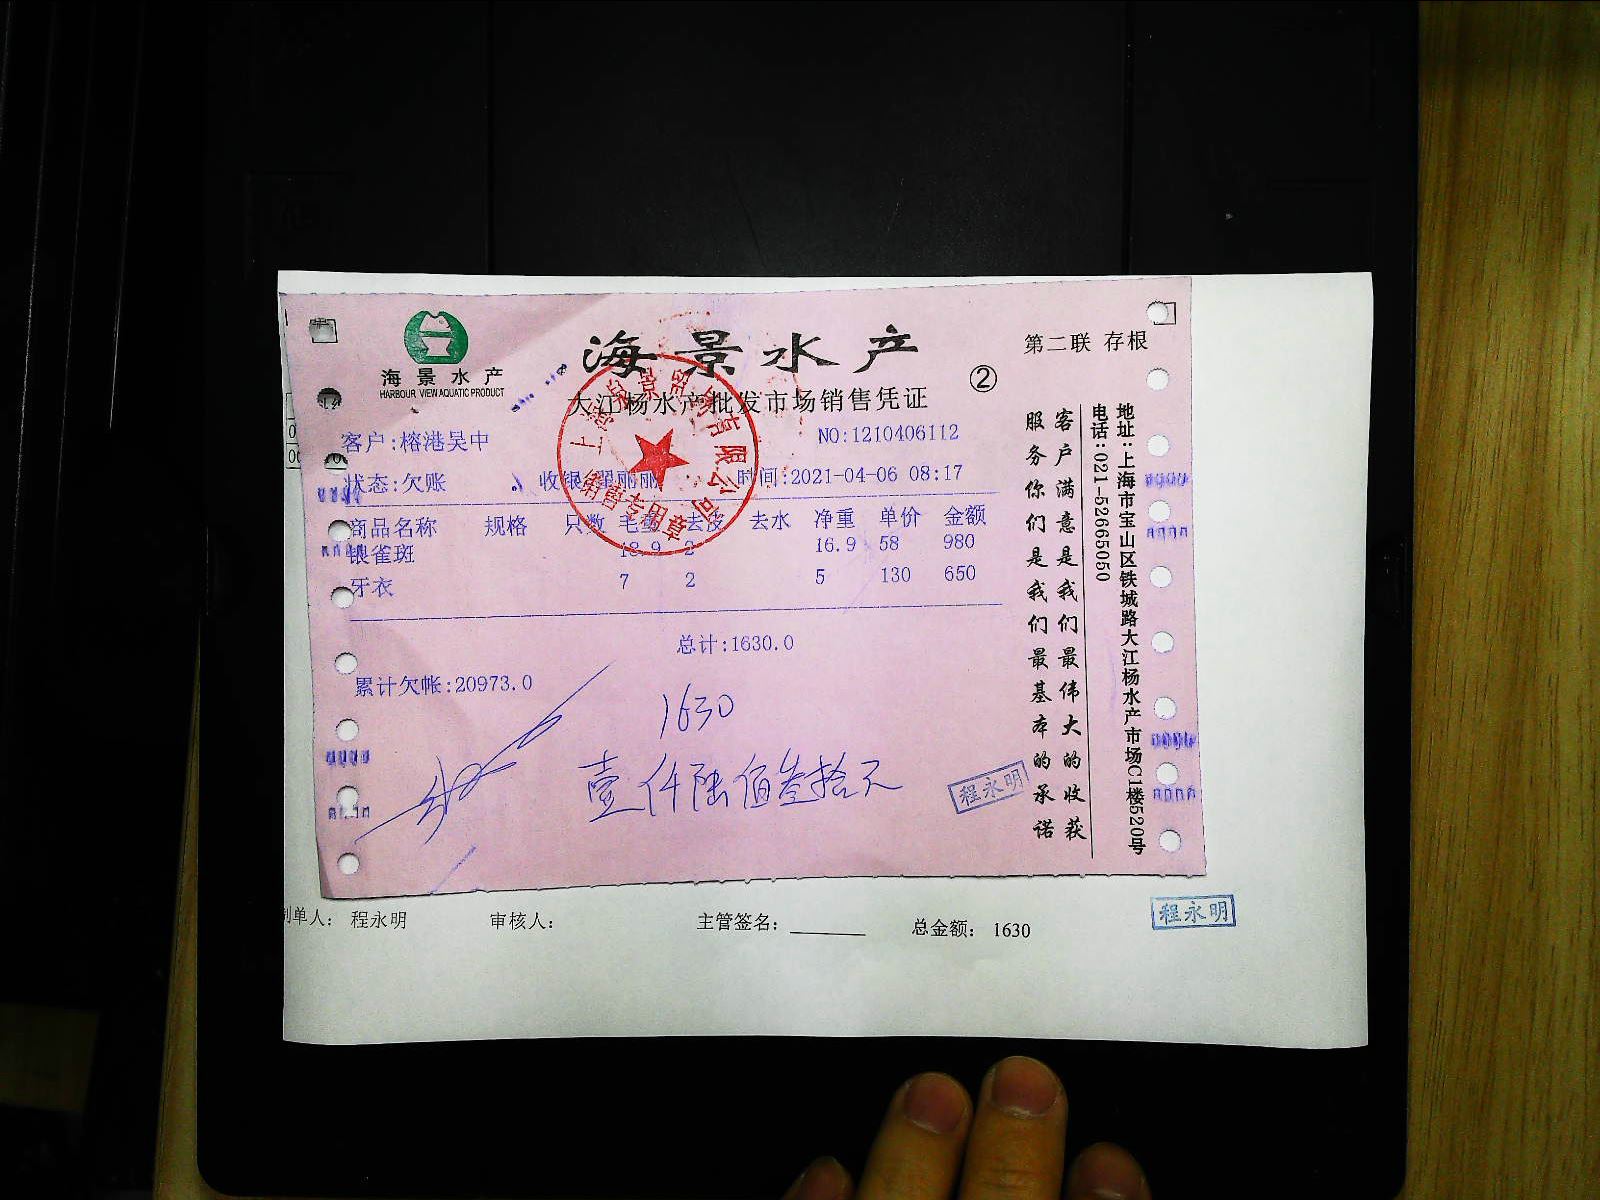 海景水产
HARBOUR VIEW AQUATIC PRODUCT
海景水产
大江杨水产批发市场销售凭证
②
第二联 存根
客户:榕港吴中
NO:1210406112
状态:欠账 收银 丽丽 时间:2021-04-06 08:17
商品名称 规格 只数 毛重 去皮 去水 净重 单价 金额
银雀斑 18.9 2 16.9 58 980
牙衣 7 2 5 130 650
总计:1630.0
累计欠帐:20973.0
1630
壹仟陆佰叁拾元
程永明
客户满意是我们最伟大的收获
服务你们是我们最基本的承诺
地址:上海市宝山区铁城路大江杨水产市场C1楼520号
电话:021-52665050
上海 景贸 有限公司
销售专用章
制单人: 程永明 审核人: 主管签名: 总金额: 1630
程永明